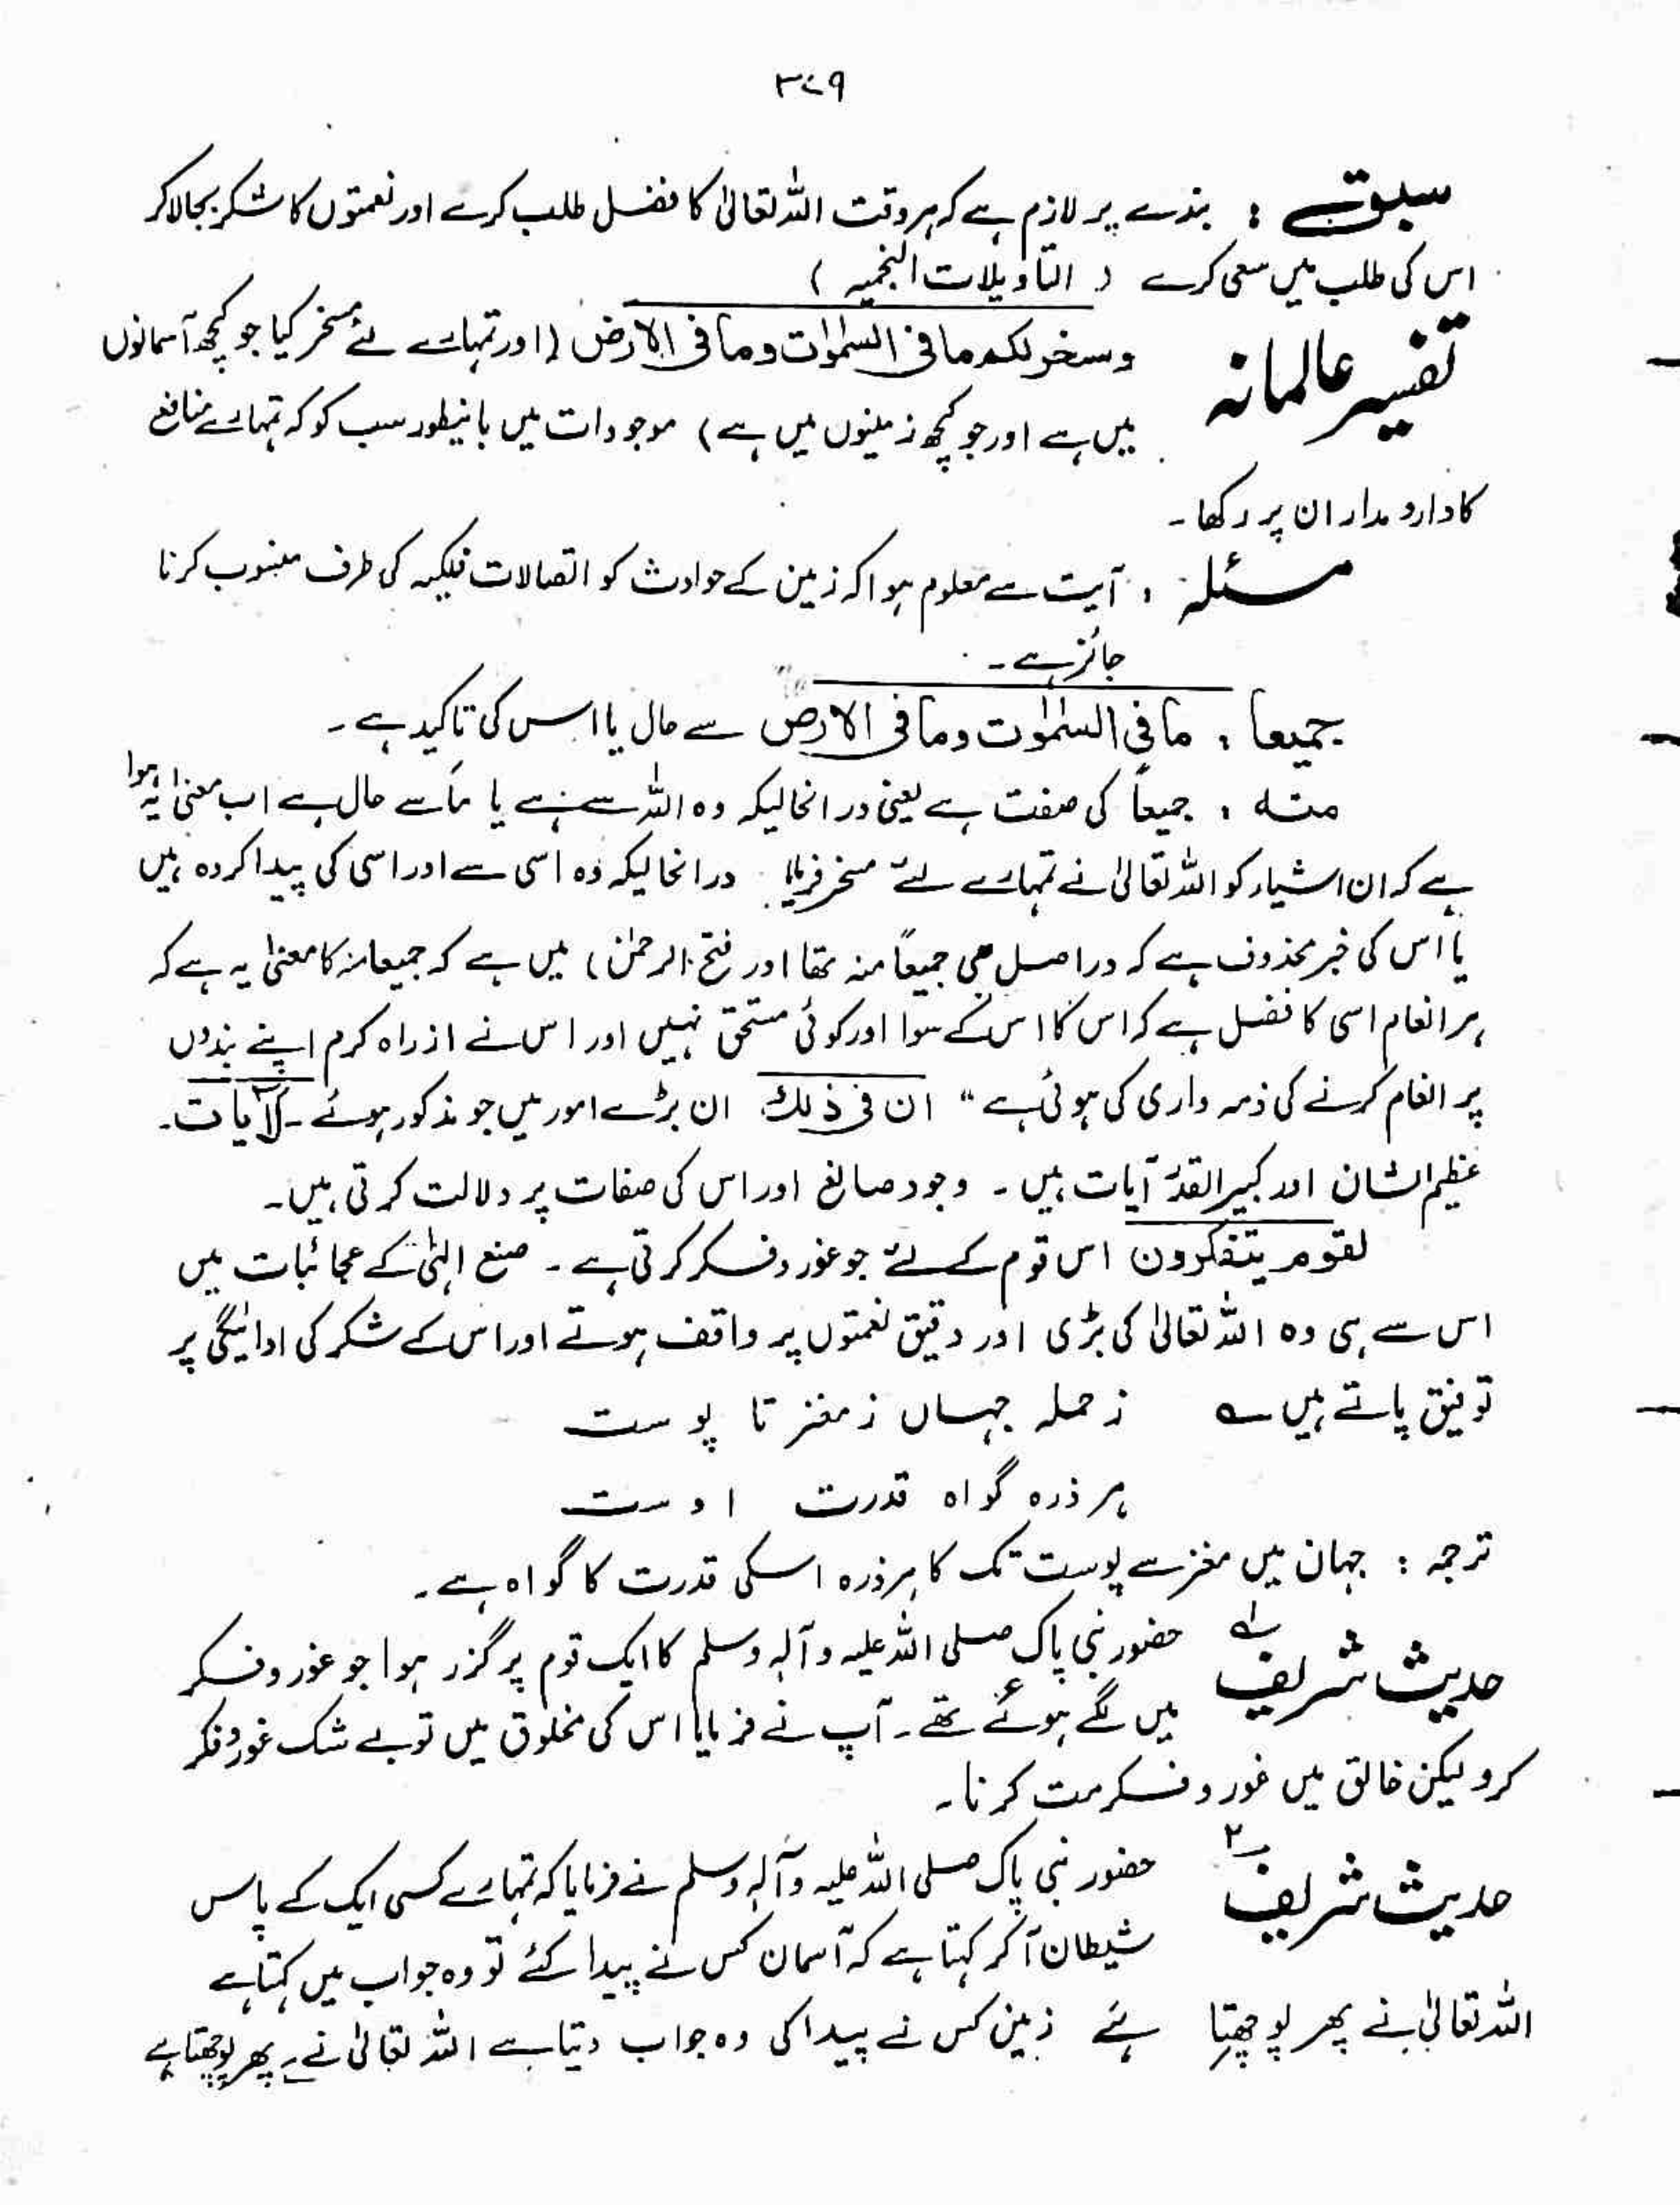 ۳۷۹
سبق : بندے پر لازم ہے کہ ہر وقت اللہ تعالیٰ کا فضل طلب کرے اور نعمتوں کا شکر بجالا کر
اس کی طلب میں سعی کرے ( التاویلات النجمیہ )
تفسیر عالمانہ وسخر لکم ما فی السمٰوٰت وما فی الارض (اور تمہارے لئے مسخر کیا جو کچھ آسمانوں
میں ہے اور جو کچھ زمینوں میں ہے) موجودات میں بانیطور سب کو کہ تمہارے منافع
کا دارو مدار ان پر رکھا۔
مسئلہ : آیت سے معلوم ہوا کہ زمین کے حوادث کو اتصالات فلکیہ کی طرف منسوب کرنا
جائز ہے۔
جمیعا : ما فی السمٰوٰت وما فی الارض سے حال یا اس کی تاکید ہے۔
منہ : جمیعاً کی صفت ہے یعنی در انحالیکہ وہ اللہ سے ہے یا مَا سے حال ہے اب معنیٰ یہ ہوا
ہے کہ ان اشیاء کو اللہ تعالیٰ نے تمہارے لئے مسخر فرمایا درانحالیکہ وہ اسی سے اور اسی کی پیدا کردہ ہیں
یا اس کی خبر محذوف ہے کہ دراصل ھی جمیعاً منہ تھا اور فتح الرحمٰن) میں ہے کہ جمیعا منہ کا معنیٰ یہ ہے کہ
ہر انعام اسی کا فضل ہے کہ اس کا اس کے سوا اور کوئی مستحق نہیں اور اس نے از راہ کرم اپنے بندوں
پر انعام کرنے کی ذمہ داری کی ہوئی ہے " ان فی ذلک ان بڑے امور میں جو مذکور ہوئے۔ لآیات۔
عظیم الشان اور کبیر القدر آیات ہیں۔ وجود صانع اور اس کی صفات پر دلالت کرتی ہیں۔
لقوم یتفکرون اس قوم کے لئے جو غور و فکر کرتی ہے۔ صنع الہٰی کے عجائبات میں
اس سے ہی وہ اللہ تعالیٰ کی بڑی اور دقیق نعمتوں پر واقف ہوتے اور اس کے شکر کی ادائیگی پر
توفیق پاتے ہیں ؎ زجملہ جہاں ز مغز تا پوست
ہر ذرہ گواہ قدرت اوست
ترجمہ : جہان میں مغز سے پوست تک کا ہر ذرہ اسکی قدرت کا گواہ ہے۔
حدیث شریف ۱ حضور نبی پاک صلی اللہ علیہ وآلہ وسلم کا ایک قوم پر گزر ہوا جو غور و فکر
میں لگے ہوئے تھے۔ آپ نے فرمایا اس کی مخلوق میں تو بے شک غور و فکر
کرو لیکن خالق میں غور و فکر مت کرنا۔
حدیث شریف ۲ حضور نبی پاک صلی اللہ علیہ وآلہ وسلم نے فرمایا کہ تمہارے کسی ایک کے پاس
شیطان آکر کہتا ہے کہ آسمان کس نے پیدا کئے تو وہ جواب میں کہتا ہے
اللہ تعالیٰ نے پھر پوچھتا ہے زمین کس نے پیدا کی وہ جواب دیتا ہے اللہ تعالیٰ نے۔ پھر پوچھتا ہے